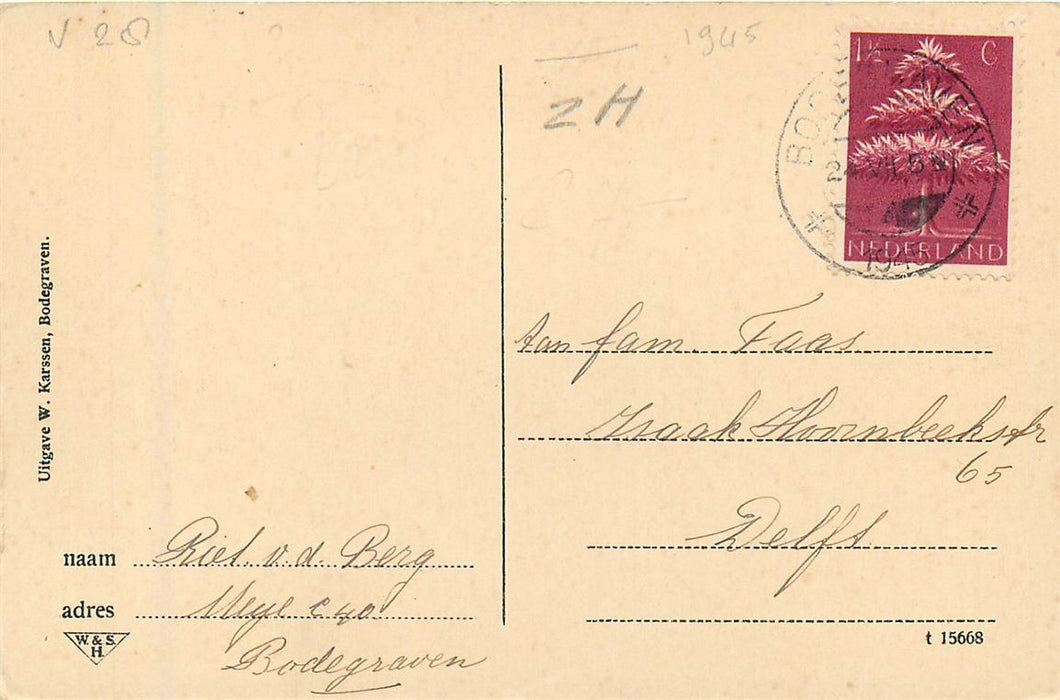 V 28
1945
ZH
1½ C
BODEGRAVEN
24 VII 5 N
1945
NEDERLAND
Uitgave W. Karssen, Bodegraven.
Aan fam. Faas
Isaak Hoornbeekstr
65
Delft
naam Riet v. d. Berg
adres Meye C 40
Bodegraven
W. & S.
H.
t 15668